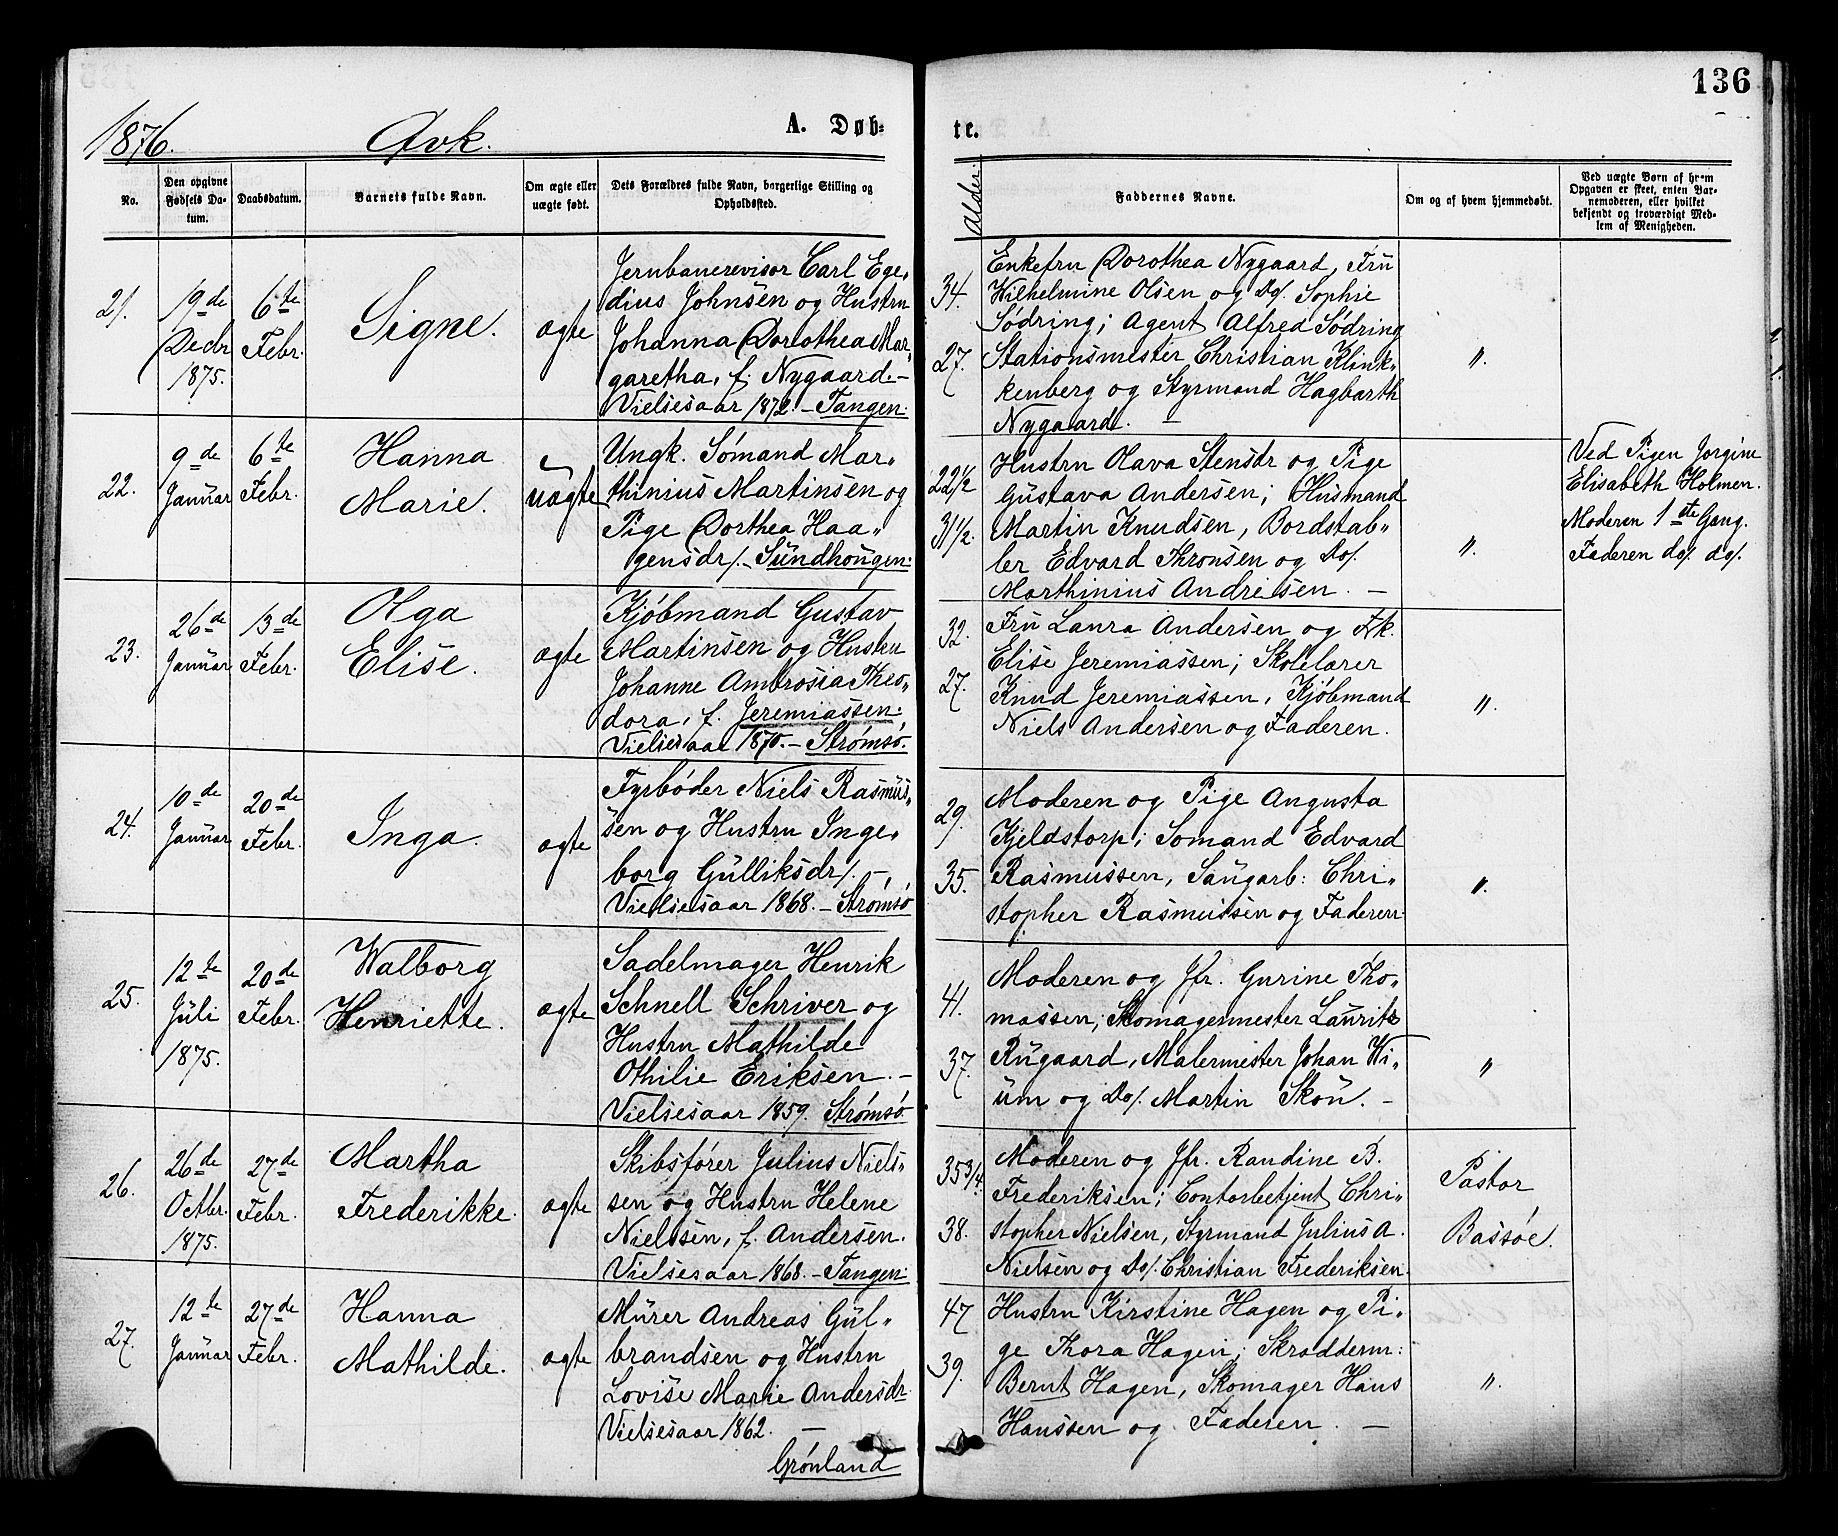 136
1876. Qvk. A. Døb- te.
No.
Den opgivne Fødsels Datum.
Daabsdatum.
Barnets fulde Navn.
Om ægte eller uægte født.
Dets Forældres fulde Navn, borgerlige Stilling og Opholdssted.
Alder:
Faddernes Navne.
Om og af hvem hjemmedøbt.
Ved uægte Børn af hvem Opgaven er skeet, enten Barnemoderen, eller hvilket bekjendt og troværdigt Medlem af Menigheden.
21.
19de Decbr 1875.
6te Febr.
Signe.
ægte
Jernbanerevisor Carl Ege„
dius Johnsen og Hustru
Johanna Dorothea Mar„
garetha, f. Nygaard.–
Vielsesaar 1872.–Tangen.
34.
27.
Enkefru Dorothea Nygaard, Fru
Wilhelmine Olsen og Do/. Sophie
Sødring; Agent Alfred Sødring
Stationsmester Christian Klink„
kenberg og Styrmand Hagbarth
Nygaard. –
"
22.
9de Januar
6te Febr.
Hanna
Marie.
uægte
Ungk. Sømand Mar„
thinius Martinsen og
Pige Dorthea Haa„
gensdr/.–Sundhougen.
22½
31½.
Hustru Olava Stensdr og Pige
Gustava Andersen; Husmand
Martin Knudsen, Bordstab„
ler Edvard Thronsen og Do/.
Marthinius Andreisen. –
"
Ved Pigen Jorgine
Elisabeth Holmen.
Moderen 1ste Gang.
Faderen do/. do/.
23.
26de Januar
13de Febr.
Olga
Elise.
ægte
Kjøbmand Gustav
Martinsen og Hustru
Johanne Ambrosia Theo„
dora, f. Jeremiassen.
Vielsesaar 1870.–Strømsø.
32.
27.
Fru Laura Andersen og Frk.
Elise Jeremiassen; Skolelærer
Knud Jeremiassen, Kjøbmand
Niels Andersen og Faderen.
"
24.
10de Januar
20de Febr.
Inga.
ægte
Fyrbøder Niels Rasmus„
sen og Hustru Inge„
borg Gulliksdr/.–
Vielsesaar 1868.–Strømsø
29.
35.
Moderen og Pige Augusta
Kjeldstorp; Sømand Edvard
Rasmussen, Saugarb: Chri„
stopher Rasmussen og Faderen.
"
25.
12te Juli 1875.
20de Febr.
Walborg
Henriette.
ægte
Sadelmager Henrik
Schnell Schriver og
Hustru Mathilde
Othilie Eriksen.–
Vielsesaar 1859. Strømsø
41.
37.
Moderen og Jfr. Gurine Tho„
massen; Skomagermester Lauritz
Rugaard, Malermester Johan Wi„
um og Do/. Martin Skou.–
"
26.
26de Octbr. 1875.
27de Febr.
Martha
Frederikke.
ægte
Skibsfører Julius Niels„
sen og Hustru Helene
Nielssen, f. Andersen.
Vielsesaar 1868.–Tangen.
35¾.
38.
Moderen og Jfr. Randine B.
Frederiksen; Contorbetjent Chri„
stopher Nielsen, Styrmand Julius A.
Nielsen og Do/. Christian Frederiksen.
Pastor
Bassøe.
27.
12te Januar
27de Febr.
Hanna
Mathilde.
ægte
Murer Andreas Gul„
brandsen og Hustru
Lovise Marie Andersdr.
Vielsesaar 1862. –
Grønland
47
39.
Hustru Kirstine Hagen og Pi„
ge Thora Hagen; Skrædderm:
Bernt Hagen, Skomager Hans
Hanssen og Faderen. –
"